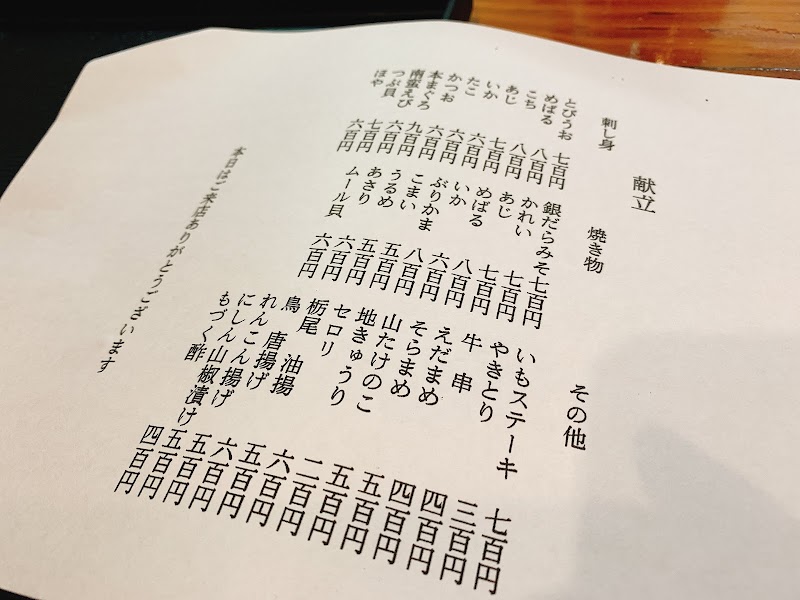 献立
刺し身
とびうお 七百円
めばる 八百円
こち 八百円
あじ 七百円
いか 六百円
たこ 六百円
かつお 六百円
本まぐろ 九百円
南蛮えび 六百円
つぶ貝 七百円
ほや 六百円
焼き物
銀だらみそ 七百円
かれい 七百円
あじ 七百円
めばる 八百円
いか 六百円
ぶりかま 八百円
こまい 五百円
うるめ 五百円
あさり 六百円
ムール貝 六百円
その他
いもステーキ 七百円
やきとり 三百円
牛串 四百円
えだまめ 四百円
そらまめ 五百円
山たけのこ 五百円
地きゅうり 二百円
セロリ 六百円
栃尾 油揚 五百円
鳥 唐揚げ 六百円
れんこん揚げ 五百円
にしん山椒漬け 五百円
もづく酢 四百円
本日はご来店ありがとうございます